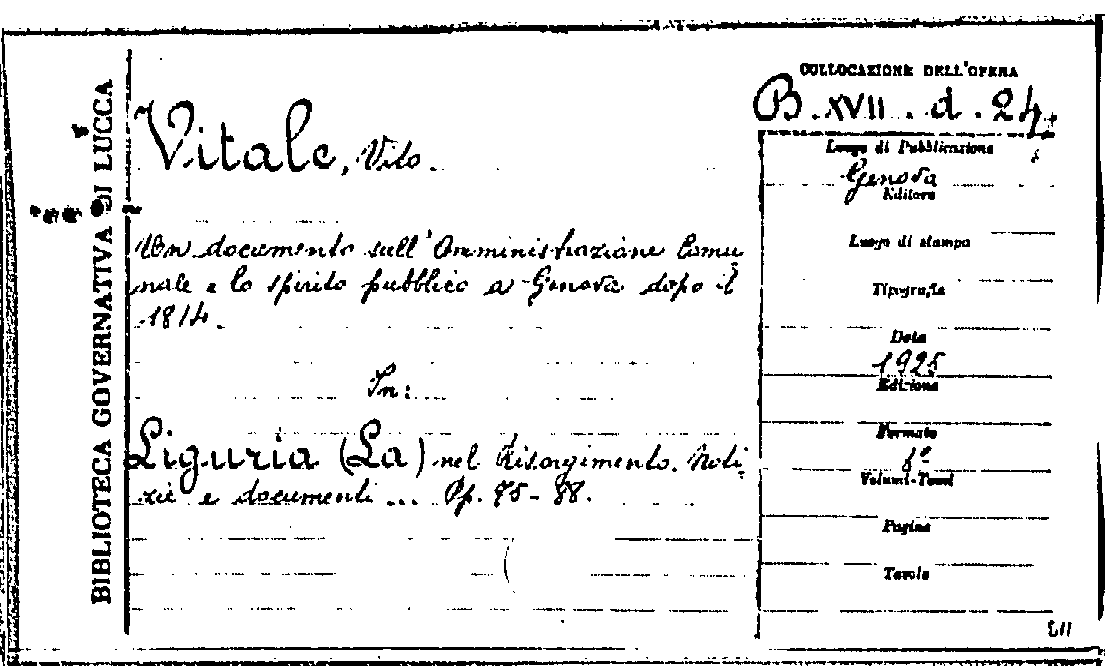 BIBLIOTECA GOVERNATIVA DI LUCCA
COLLOCAZIONE DELL'OPERA
B. XVII. d. 24.
Vitale, Vito.
Un documento sull'Amministrazione Comu
nale e lo spirito pubblico a Genova dopo il
1814.
In:
Liguria (La) nel Risorgimento. Noti
zie e documenti ... Pp.
Luogo di Pubblicazione
Genova
Editore
Luogo di stampa
Tipografia
Data
1925
Edizione
Formato
8º
Volumi-Tomi
Pagine
Tavole